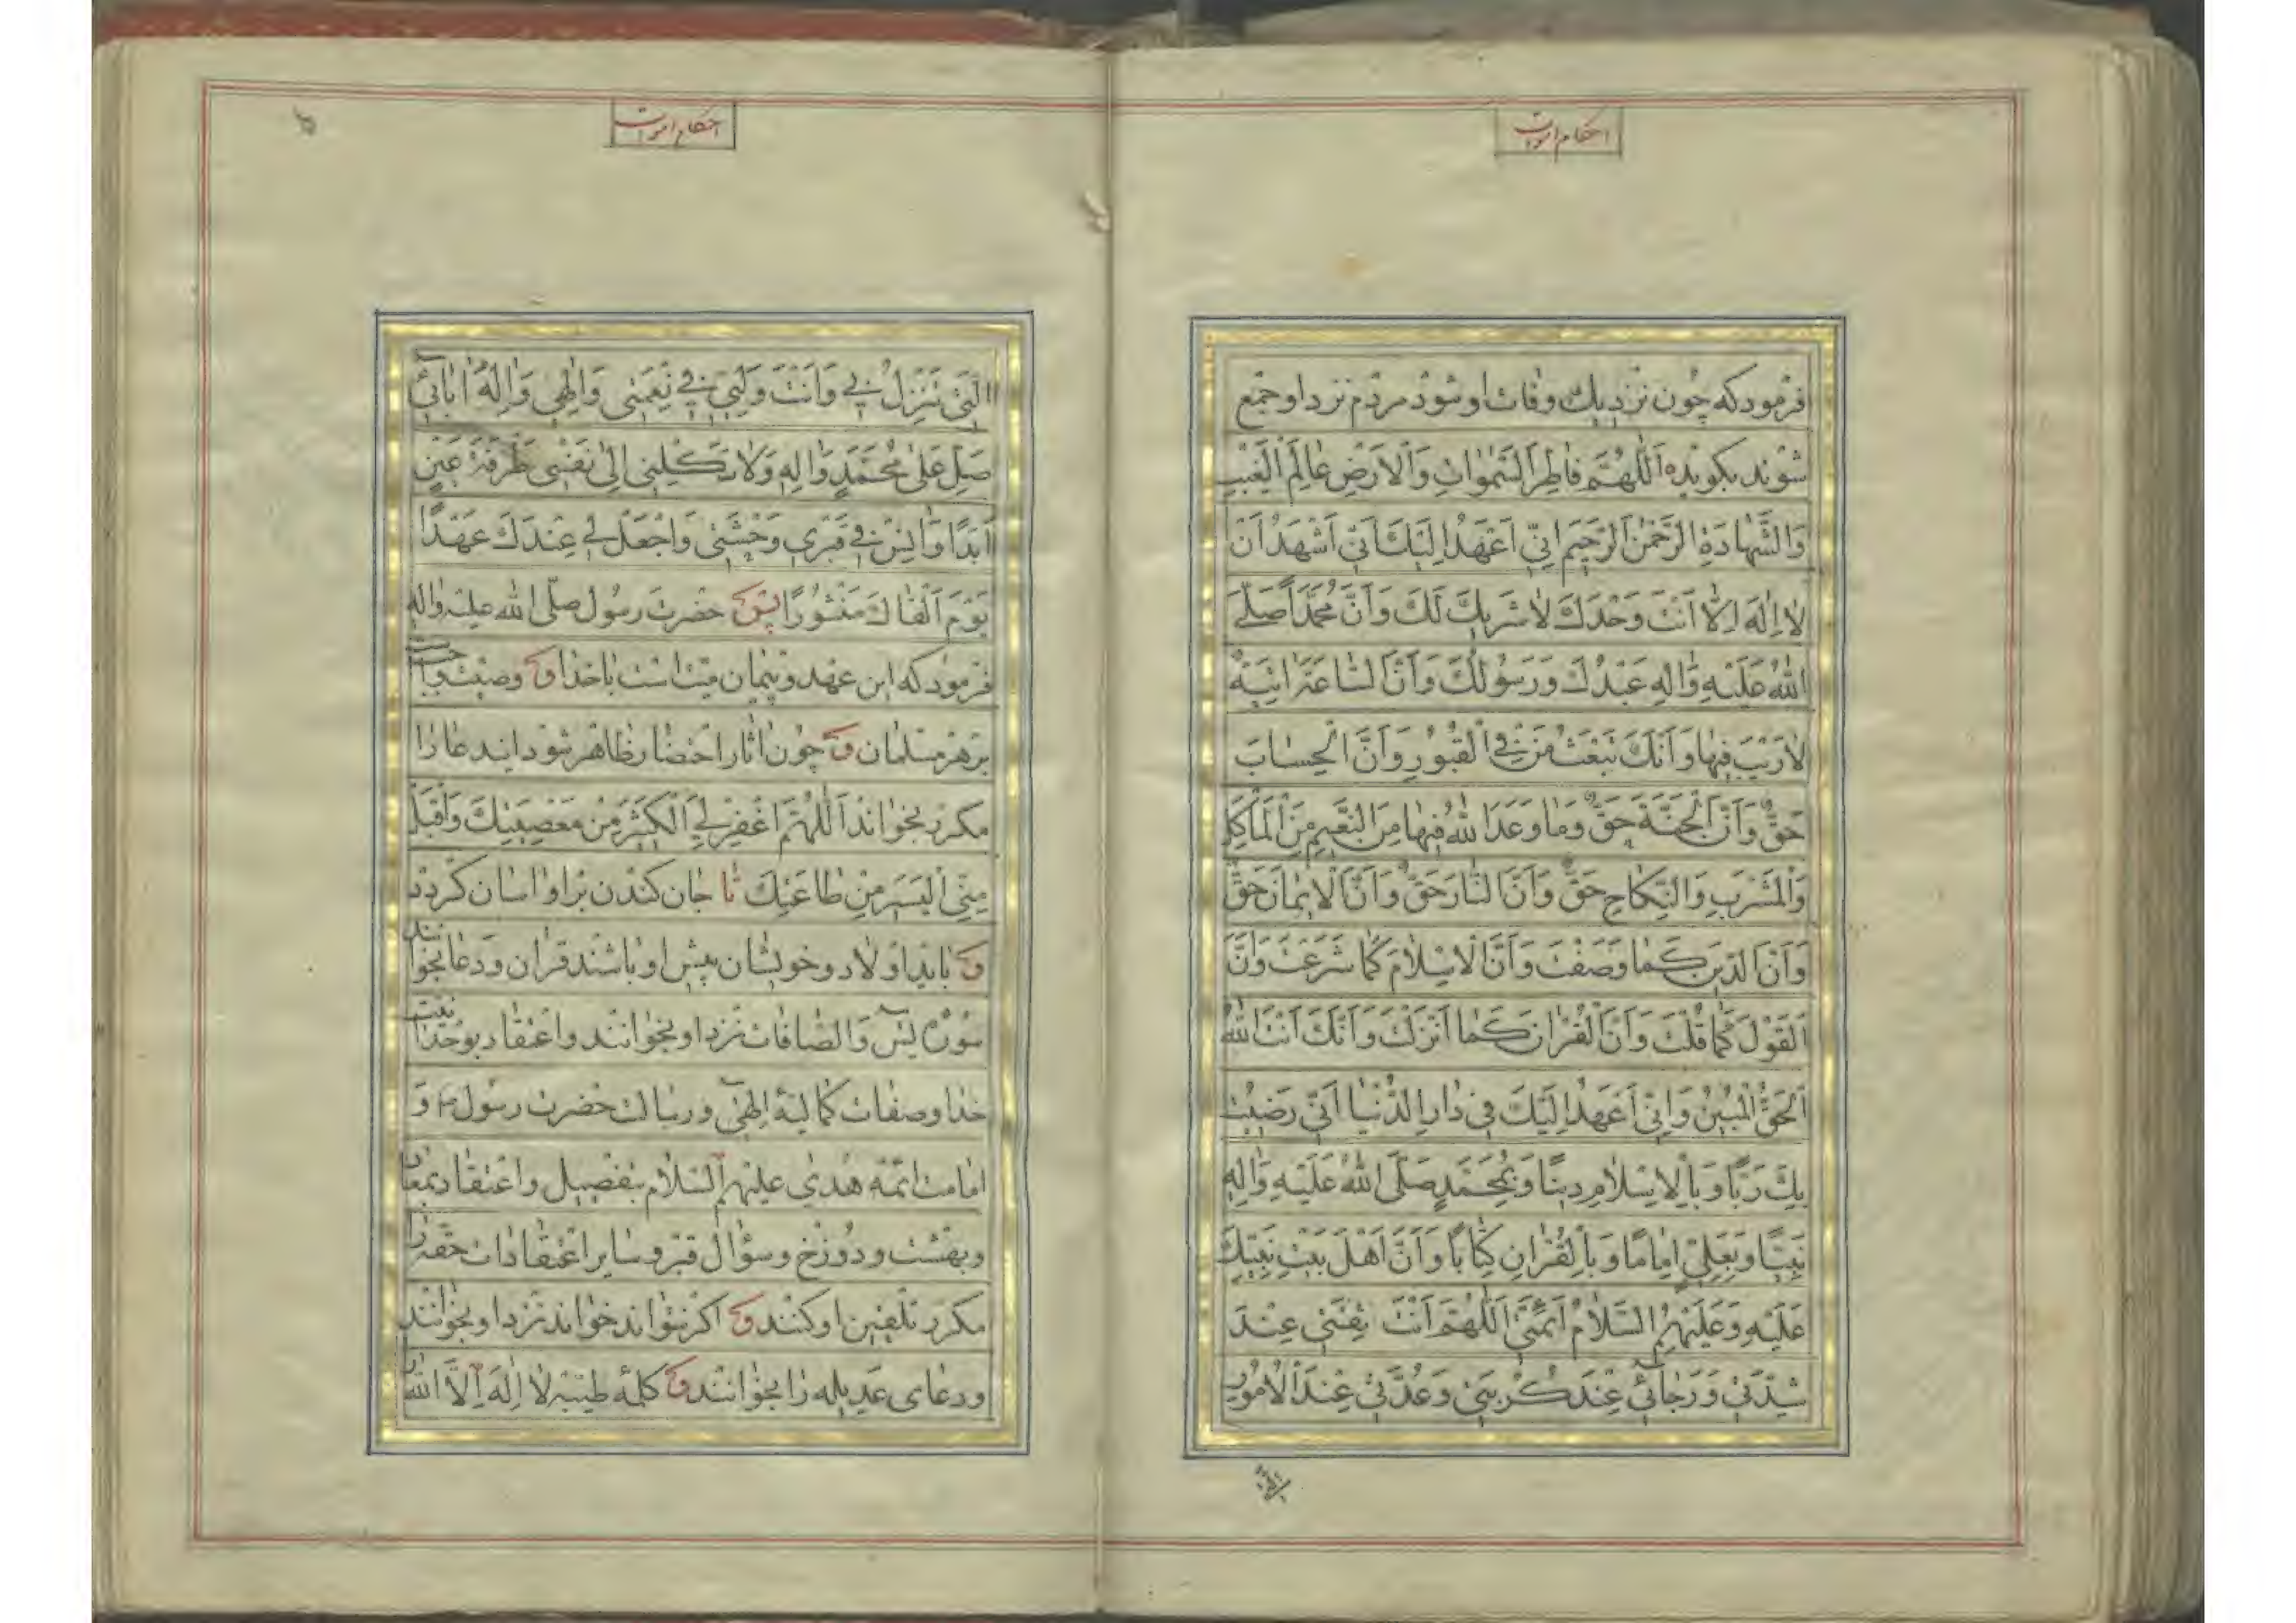 احکام اموات
فرمود که چون نزدیک وفات او شود مردم نزد او جمع
شوند بکوید اَللّٰهُمَّ فاطِرَ السَّمٰواتِ وَالْاَرْضِ عالِمَ الْغَیْبِ
وَالشَّهادَةِ الرَّحْمٰنَ الرَّحیمَ اِنّی اَعْهَدُ اِلَیْكَ اَنّی اَشْهَدُ اَنْ
لا اِلٰهَ اِلّا اَنْتَ وَحْدَكَ لا شَریكَ لَكَ وَاَنَّ مُحَمَّداً صَلَّی
اللهُ عَلَیْهِ وَاٰلِهِ عَبْدُكَ وَرَسُولُكَ وَاَنَّ السّاعَةَ اٰتِیَةٌ
لا رَیْبَ فیها وَاَنَّكَ تَبْعَثُ مَنْ فِی الْقُبُورِ وَاَنَّ الْحِسابَ
حَقٌّ وَاَنَّ الْجَنَّةَ حَقٌّ وَما وَعَدَ اللهُ فیها مِنَ النَّعیمِ مِنَ الْمَاْکَلِ
وَالْمَشْرَبِ وَالنِّکاحِ حَقٌّ وَاَنَّ النّارَ حَقٌّ وَاَنَّ الْایمانَ حَقٌّ
وَاَنَّ الدّینَ کَما وَصَفْتَ وَاَنَّ الْاِسْلامَ کَما شَرَعْتَ وَاَنَّ
الْقَوْلَ کَما قُلْتَ وَاَنَّ الْقُرْاٰنَ کَما اَنْزَلْتَ وَاَنَّكَ اَنْتَ اللهُ
الْحَقُّ الْمُبینُ وَاِنّی اَعْهَدُ اِلَیْكَ فی دارِ الدُّنْیا اَنّی رَضیتُ
بِكَ رَبّاً وَبِالْاِسْلامِ دیناً وَبِمُحَمَّدٍ صَلَّی اللهُ عَلَیْهِ وَاٰلِهِ
نَبِیّاً وَبِعَلِیٍّ اِماماً وَبِالْقُرْاٰنِ کِتاباً وَاَنَّ اَهْلَ بَیْتِ نَبِیِّكَ
عَلَیْهِ وَعَلَیْهِمُ السَّلامُ اَئِمَّتی اَللّٰهُمَّ اَنْتَ ثِقَتی عِنْدَ
شِدَّتی وَرَجائی عِنْدَ کُرْبَتی وَعُدَّتی عِنْدَ الْاُمُورِ
الَّتی
احکام اموات
الَّتی تَنْزِلُ بی وَاَنْتَ وَلِیّی فی نِعْمَتی وَاِلٰهی وَاِلٰهُ اٰبائی
صَلِّ عَلیٰ مُحَمَّدٍ وَاٰلِهِ وَلا تَکِلْنی اِلیٰ نَفْسی طَرْفَةَ عَیْنٍ
اَبَداً وَاٰنِسْ فی قَبْری وَحْشَتی وَاجْعَلْ لی عِنْدَكَ عَهْداً
یَوْمَ اَلْقاكَ مَنْشُوراً پس حضرت رسول صلّی الله علیه واله
فرمود که این عهد و پیمان میّت است با خدا و وصیّت واجبست
بر هر مسلمان و چون اثار احتضار ظاهر شود ایندعا را
مکرر بخواند اَللّٰهُمَّ اغْفِرْ لِیَ الْکَثیرَ مِنْ مَعْصِیَتِكَ وَاقْبَلْ
مِنّی الْیَسیرَ مِنْ طاعَتِكَ تا جان کندن بر او اسان کردد
و باید اولاد و خویشان پیش او باشند قران و دعا بخوانند
سورۀ یس و الصافات نزد او بخوانند و اعتقاد بوحدانیّت
خدا و صفات کمالیۀ الهی و رسالت حضرت رسول و
امامت ائمّه هدی علیهم السلام بتفصیل و اعتقاد بمعاد
و بهشت و دوزخ و سؤال قبر و سایر اعتقادات حقّه را
مکرر تلقین او کنند و اکر نتواند خواند نزد او بخوانند
و دعای عدیله را بخوانند و کلمۀ طیّبه لا اِلٰهَ اِلَّا الله را